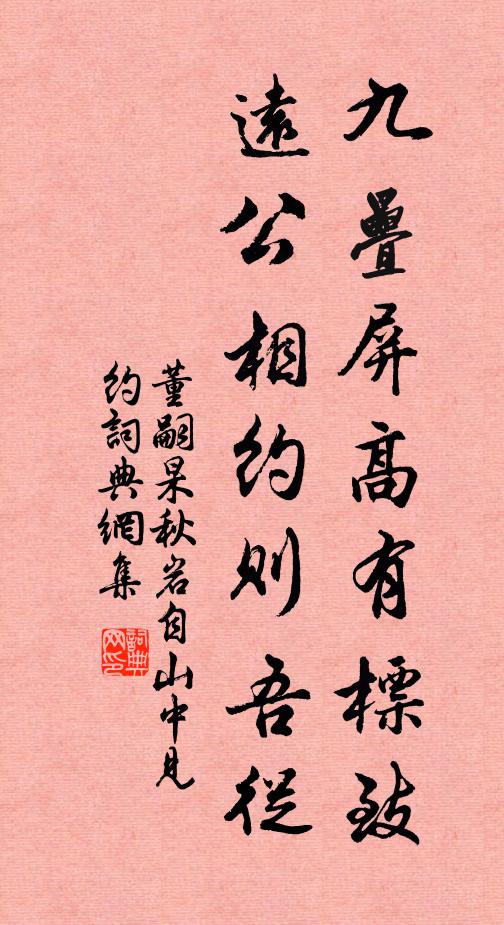 九疊屏高有標致
遠公相約則吾從
董嗣杲秋岩自山中見
約詞典網集
詞典网印